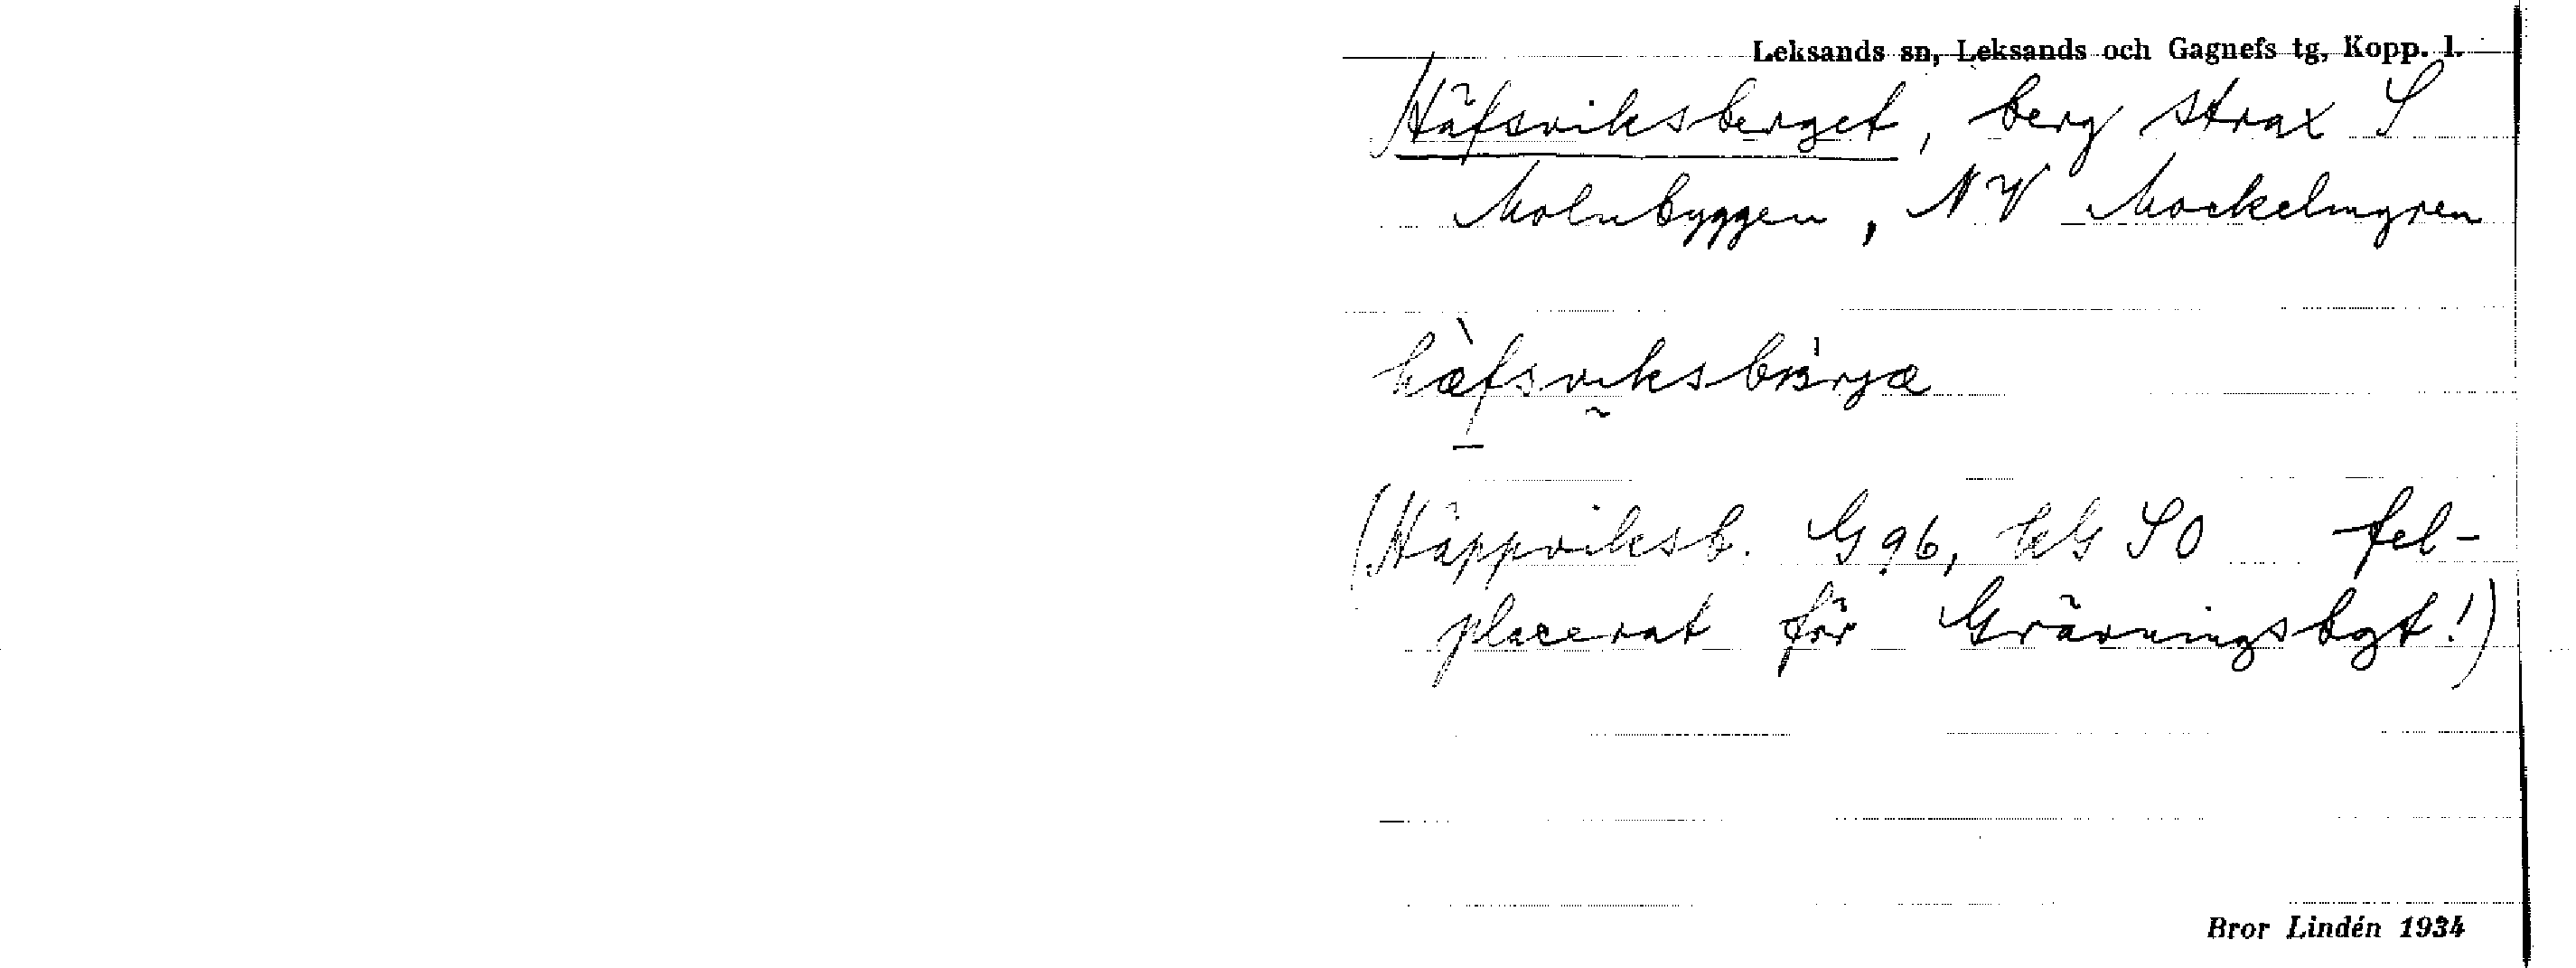 Leksands sn, Leksands och Gagnefs tg, Kopp. l.
Häfsviksberget, berg strax S
Molnbyggen, NV Mockelmyren
hæ̀fsviksbærjæ
(Häppviksb. G 96, kG SO fel-
placerat för Grävningsbgt!)
Bror Lindén 1934